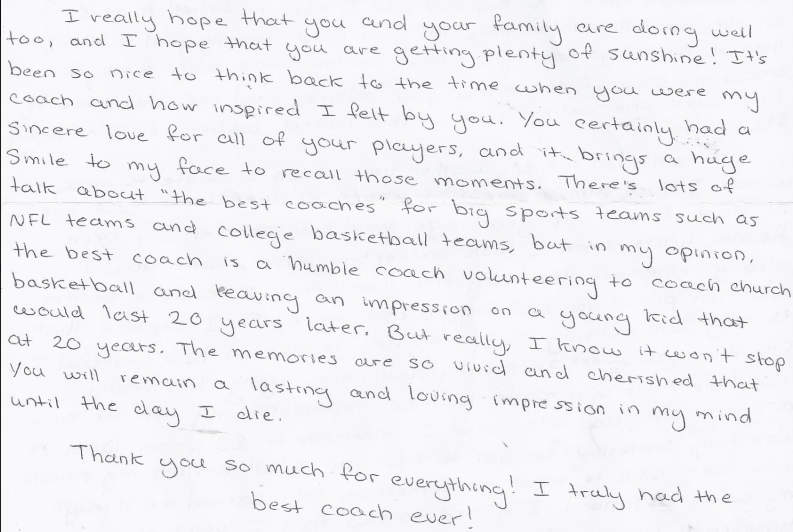 I really hope that you and your family are doing well
too, and I hope that you are getting plenty of sunshine! It's
been so nice to think back to the time when you were my
coach and how inspired I felt by you. You certainly had a
sincere love for all of your players, and it brings a huge
smile to my face to recall those moments. There's lots of
talk about "the best coaches" for big sports teams such as
NFL teams and college basketball teams, but in my opinion,
the best coach is a humble coach volunteering to coach church
basketball and leaving an impression on a young kid that
would last 20 years later. But really, I know it won't stop
at 20 years. The memories are so vivid and cherished that
you will remain a lasting and loving impression in my mind
until the day I die.
Thank you so much for everything! I truly had the
best coach ever!